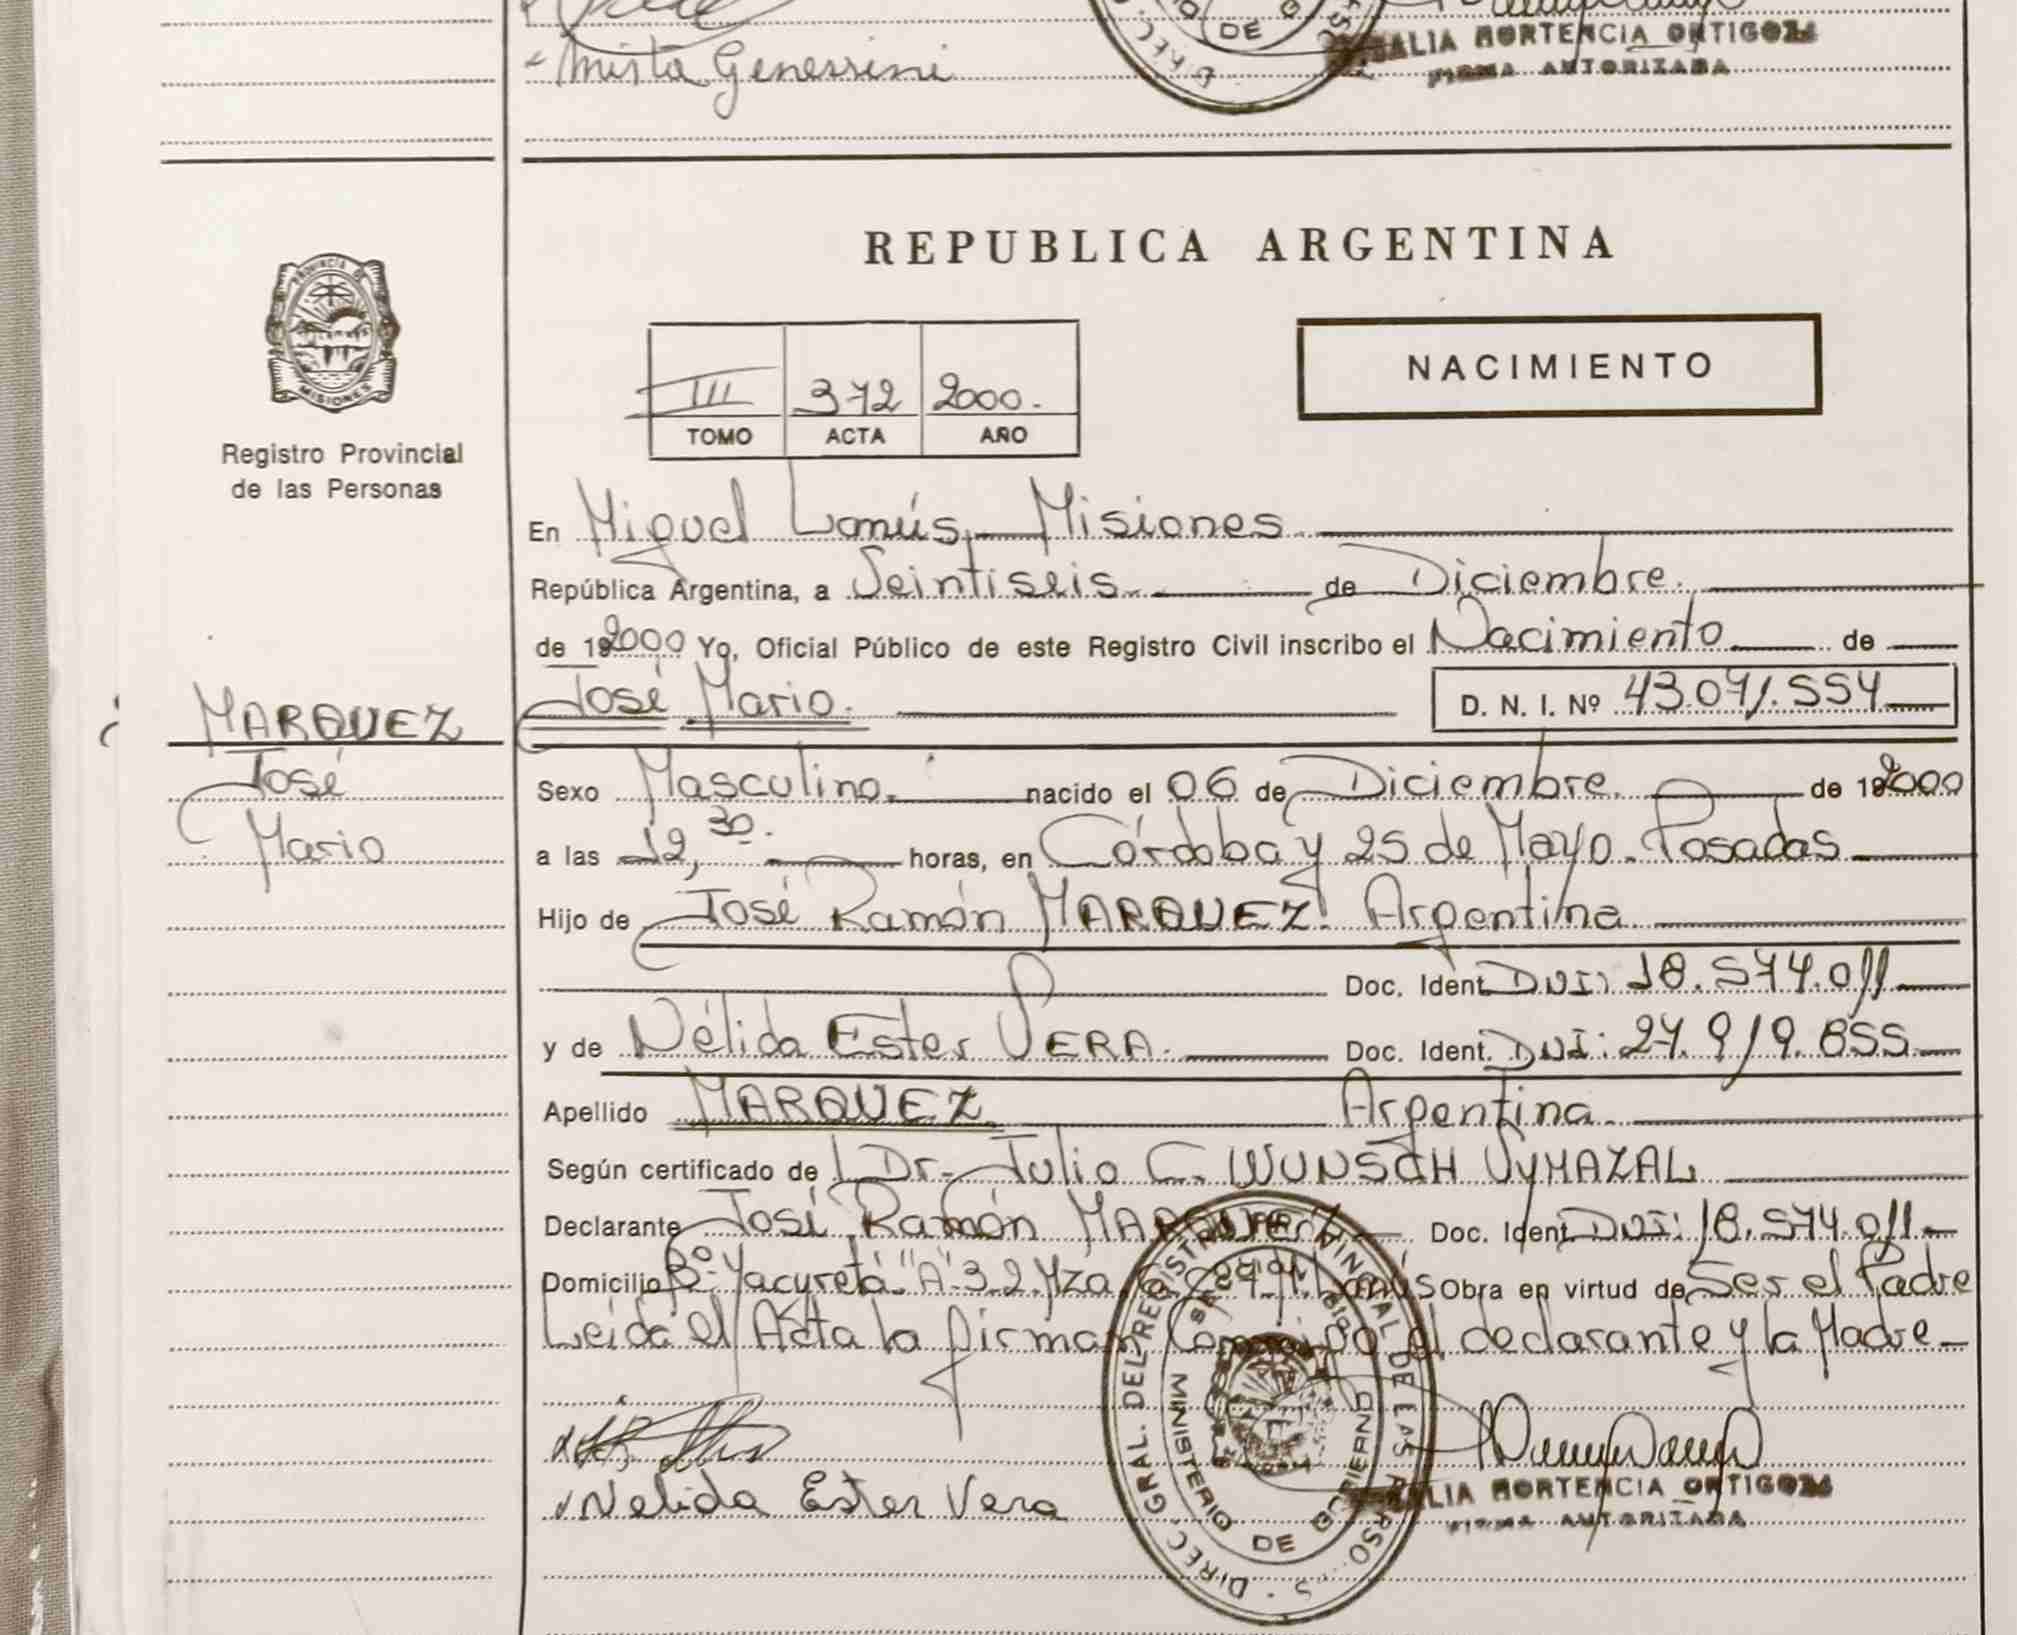 Mirta Genessini
ALIA HORTENCIA ORTIGOZA
FIRMA AUTORIZADA
DE
DIREC
REPUBLICA ARGENTINA
PROVINCIA DE
MISIONES
Registro Provincial
de las Personas
III 372 2000.
TOMO ACTA AÑO
NACIMIENTO
En Miguel Lanús, Misiones
República Argentina, a Veintiseis de Diciembre.
de 192000 Yo, Oficial Público de este Registro Civil inscribo el Nacimiento de
José Mario. D. N. I. Nº 43.071.554
MARQUEZ
José
Mario
Sexo Masculino. nacido el 06 de Diciembre. de 192000
a las 12,30. horas, en Córdoba y 25 de Mayo. Posadas
Hijo de José Ramón MARQUEZ. Argentina
Doc. Ident. DNI: 18.574.011
y de Nélida Ester VERA. Doc. Ident. DNI: 27.919.855
Apellido MARQUEZ Argentina.
Según certificado de Dr. Julio C. WUNSCH VYMAZAL
Declarante José Ramón MARQUEZ Doc. Ident. DNI: 18.574.011.
Domicilio Bº Yacyretá "A" 3.2 Mza. Lanús Obra en virtud de Ser el Padre
Leida el Acta la firman Conmigo el declarante y la Madre
Nelida Ester Vera
ALIA HORTENCIA ORTIGOZA
FIRMA AUTORIZADA
DIREC. GRAL. DEL REGISTRO PROVINCIAL DE LAS PERSONAS
MINISTERIO DE GOBIERNO